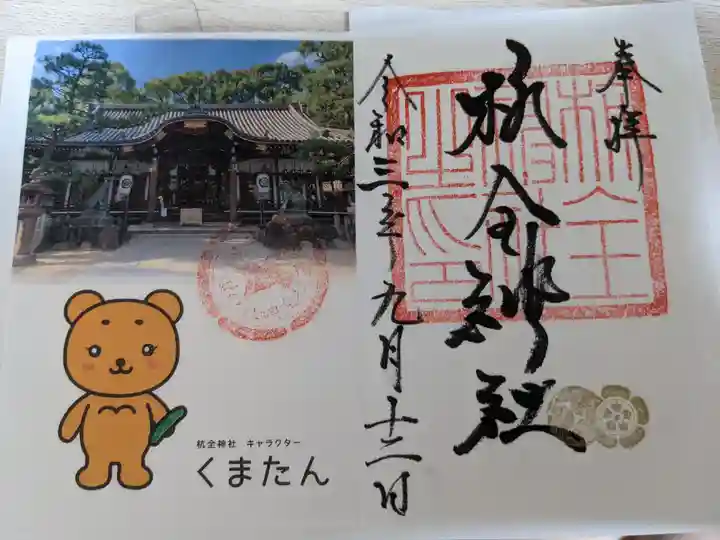 奉拝
杭全神社
令和三年九月十二日
杭全神社 キャラクター
くまたん